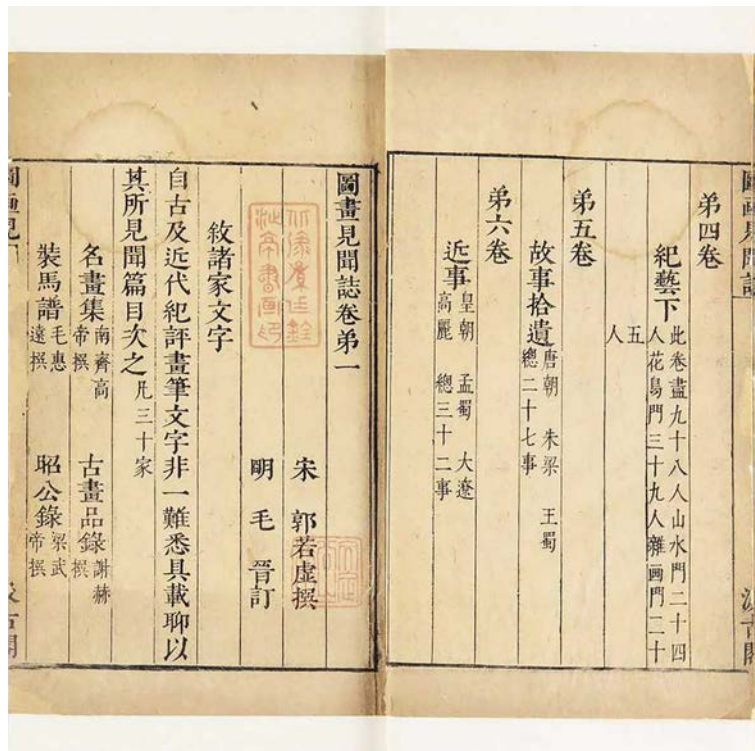 弟四卷
紀藝下
此卷畫九十八人山水門二十四
人花鳥門三十九人雜画門二十
五
人
弟五卷
故事拾遺
唐朝 朱梁 王蜀
總二十七事
弟六卷
近事
皇朝 孟蜀 大遼
高麗 總三十二事
圖畫見聞誌卷弟一
宋 郭若虛撰
明 毛 晉訂
敘諸家文字
自古及近代紀評畫筆文字非一難悉具載聊以
其所見聞篇目次之凡三十家
名畫集 南齊高帝撰 古畫品錄 謝赫撰
裝馬譜 毛惠遠撰 昭公錄 梁武帝撰